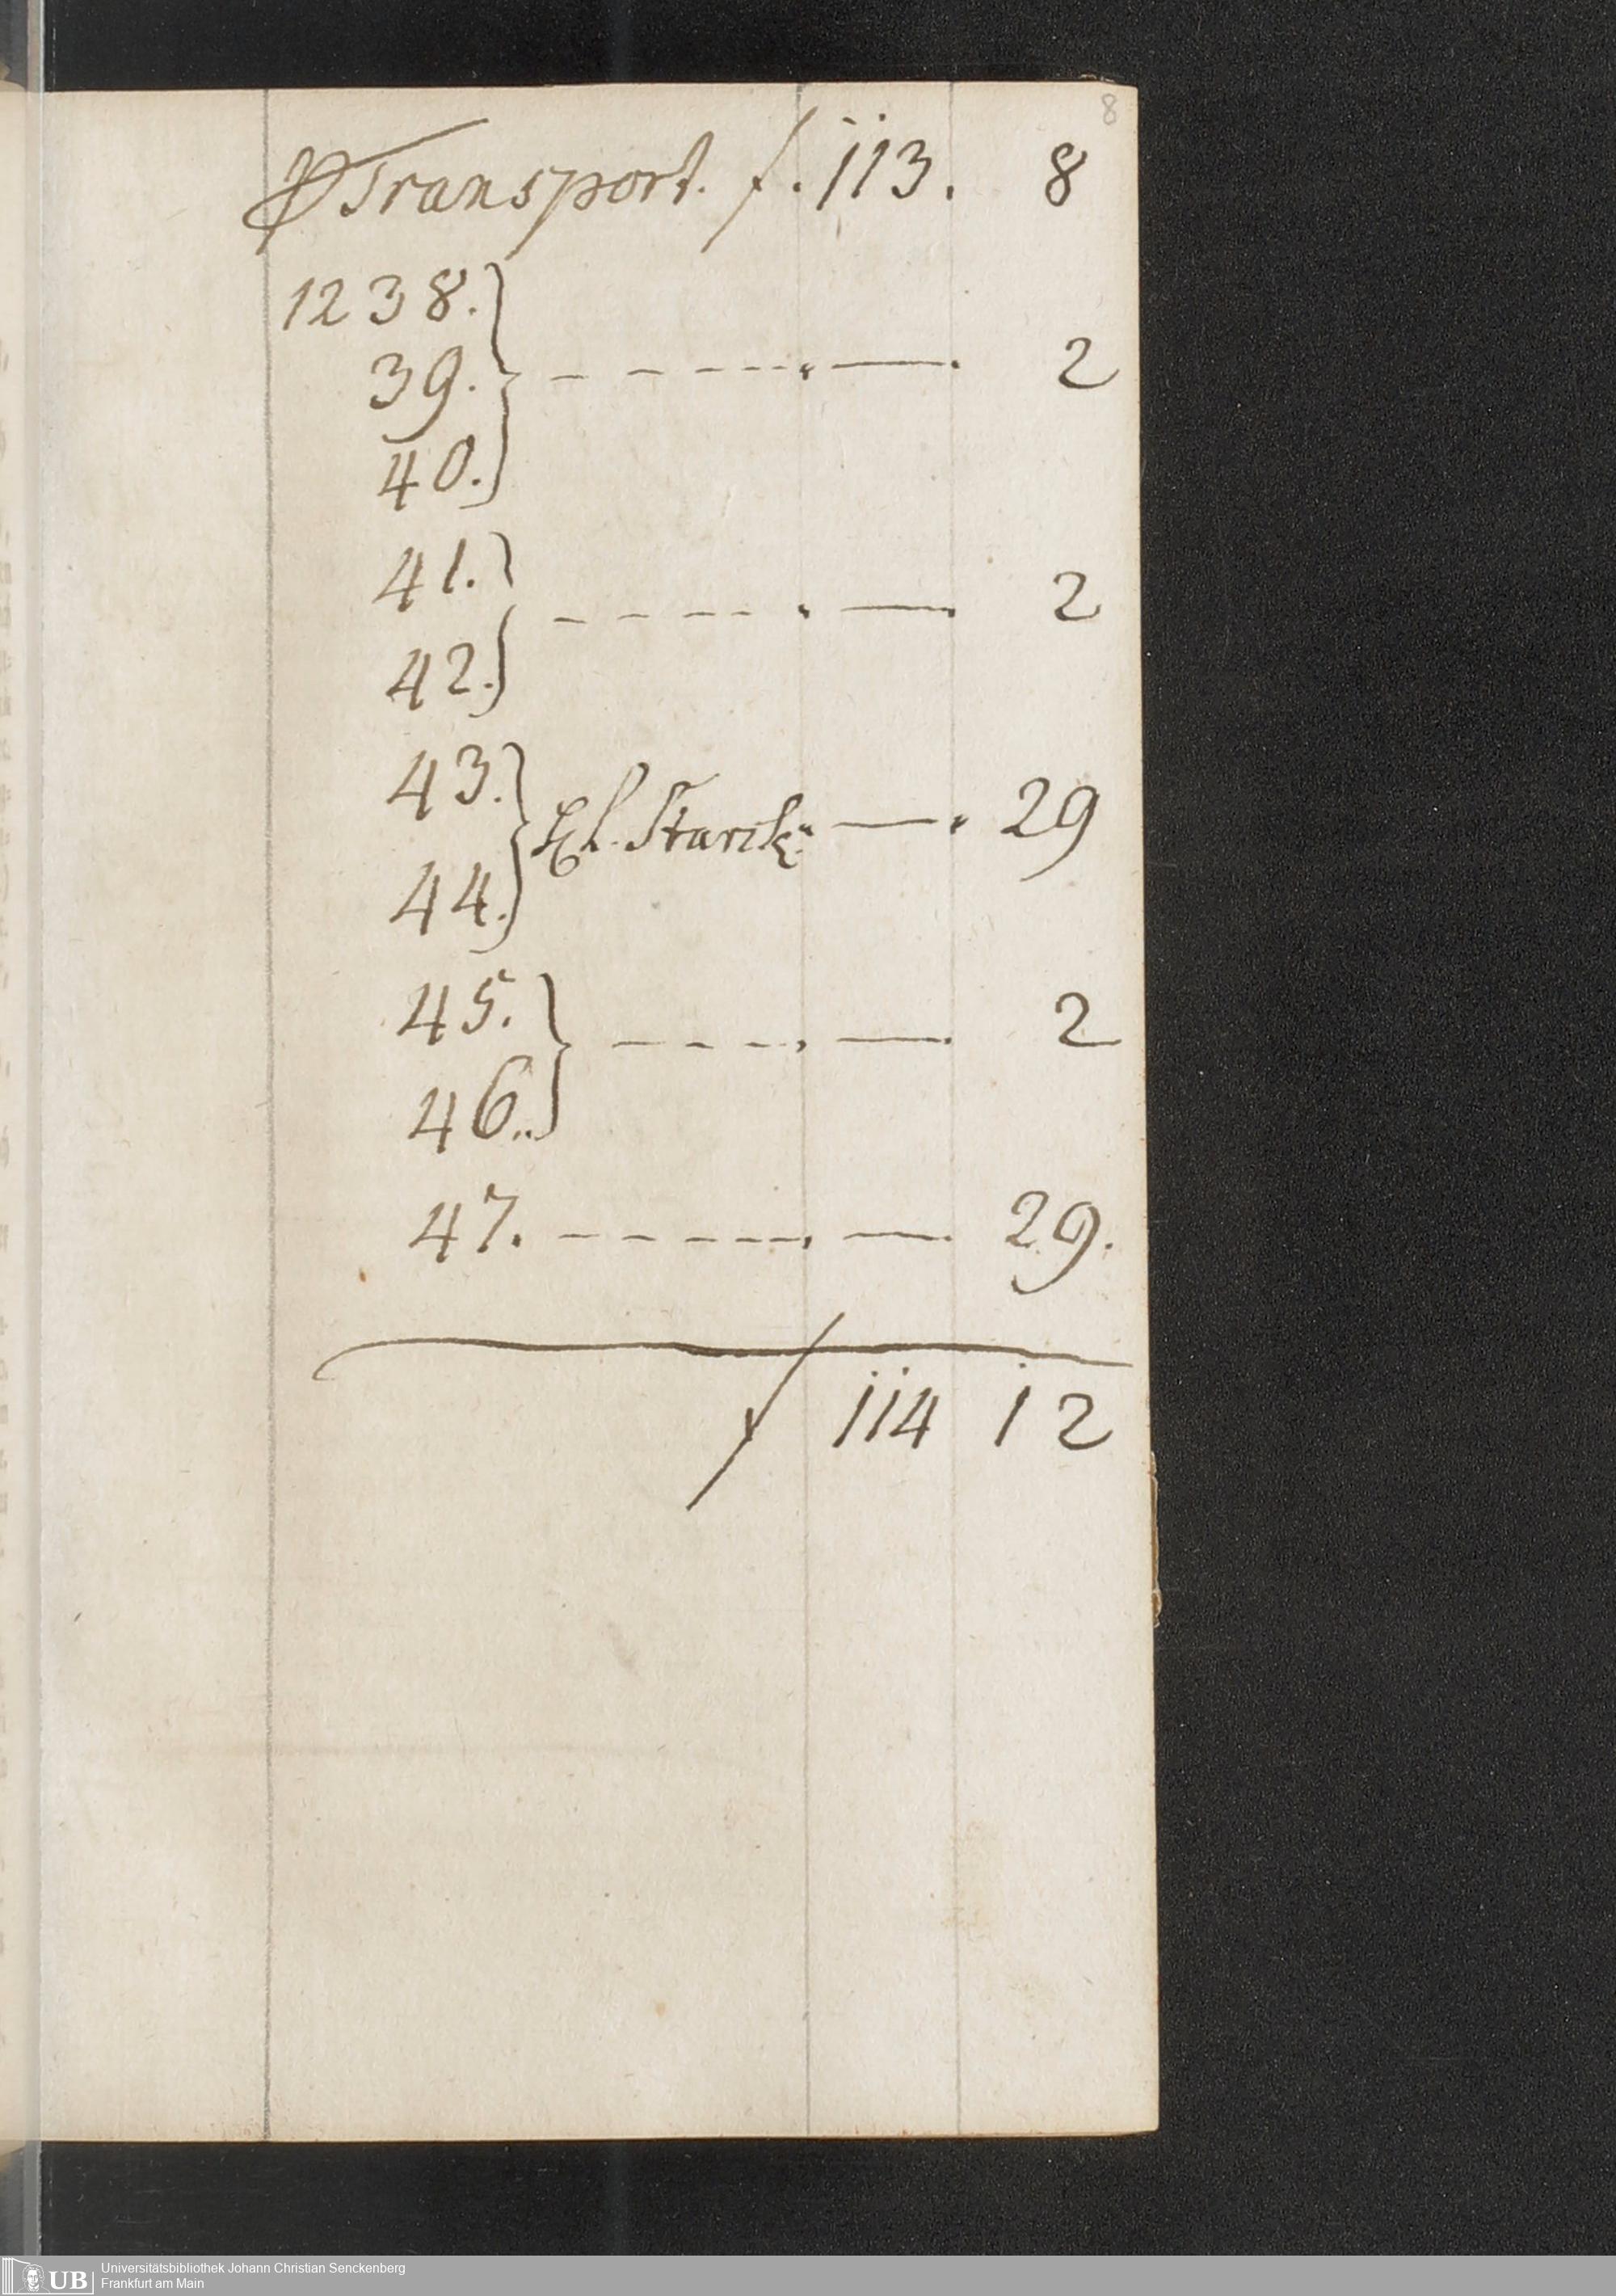 8
Transport. f. 113. 8
1238.
39. - - - - - — 2
40.
41.
- - - - — 2
42.
43.
Starck — 29
44.
45.
- - - - — 2
46.
47. - - - - - — 29.
f 114 12
UB
Universitätsbibliothek Johann Christian Senckenberg
Frankfurt am Main